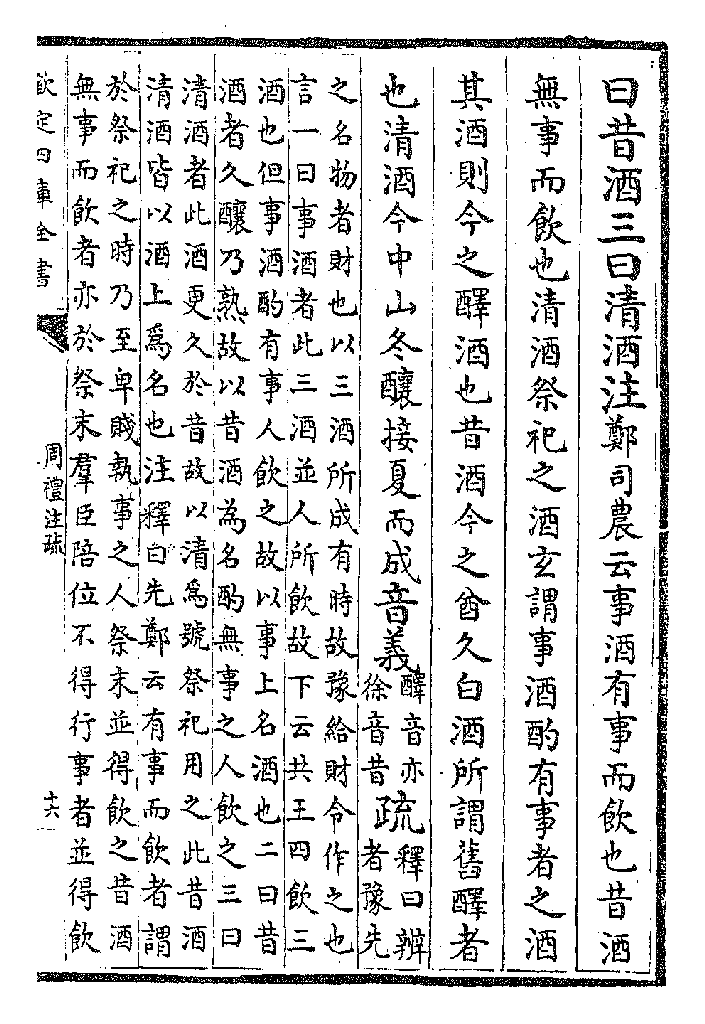 曰昔酒三曰清酒注鄭司農云事酒有事而飲也昔酒
無事而飲也清酒祭祀之酒玄謂事酒酌有事者之酒
其酒則今之醳酒也昔酒今之酋久白酒所謂舊醳者
也清酒今中山冬釀接夏而成音義醳音亦
徐音昔疏釋曰辨
者豫先
之名物者財也以三酒所成有時故豫給財令作之也
言一曰事酒者此三酒並人所飲故下云共王四飲三
酒也但事酒酌有事人飲之故以事上名酒也二曰昔
酒者久釀乃熟故以昔酒為名酌無事之人飲之三曰
清酒者此酒更久於昔故以清爲號祭祀用之此昔酒
清酒皆以酒上爲名也注釋曰先鄭云有事而飲者謂
於祭祀之時乃至卑賤執事之人祭末並得飲之昔酒
無事而飲者亦於祭末羣臣陪位不得行事者並得飲
欽定四庫全書
周禮注疏
十六